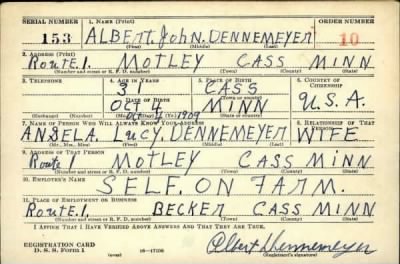 SERIAL NUMBER 1. NAME (Print) ORDER NUMBER
153 ALBERT. John. DENNEMEYER 10
(First) (Middle) (Last)
2. ADDRESS (Print)
Route. 1. MOTLEY CASS MINN
(Number and street or R. F. D. number) (Town) (County) (State)
3. TELEPHONE 4. AGE IN YEARS 5. PLACE OF BIRTH 6. COUNTRY OF CITIZENSHIP
CASS
DATE OF BIRTH (Town or county)
OCT MINN U.S.A.
1909
(Exchange) (Number) (Mo.) (Day) (Yr.) (State or country)
7. NAME OF PERSON WHO WILL ALWAYS KNOW YOUR ADDRESS 8. RELATIONSHIP OF THAT PERSON
ANGELA. Lucy. DENNEMEYER WIFE
(Mr., Mrs., Miss) (First) (Middle) (Last)
9. ADDRESS OF THAT PERSON
Route MOTLEY CASS MINN
(Number and street or R. F. D. number) (Town) (County) (State)
10. EMPLOYER'S NAME
SELF. ON FARM.
11. PLACE OF EMPLOYMENT OR BUSINESS
Route. 1. BECKER CASS MINN
(Number and street or R. F. D. number) (Town) (County) (State)
I AFFIRM THAT I HAVE VERIFIED ABOVE ANSWERS AND THAT THEY ARE TRUE.
REGISTRATION CARD
D. S. S. Form 1 Albert Dennemeyer
(over) (Registrant's signature)